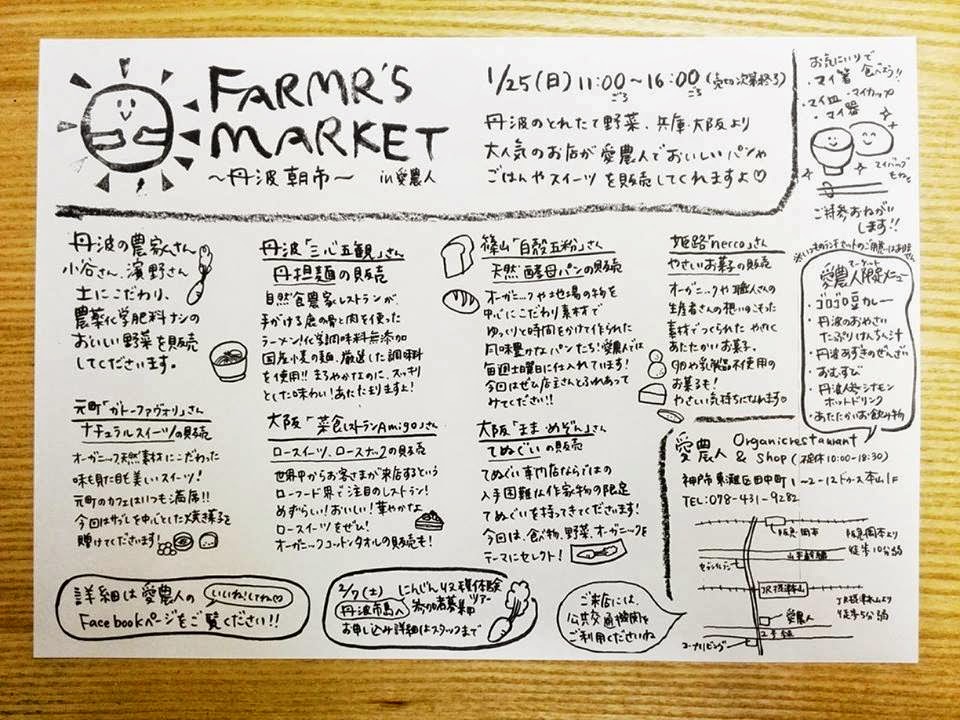 FARMR'S
MARKET
〜丹波朝市〜 in 愛農人
1/25(日) 11:00〜16:00 (売切次第終了)
ごろ ごろ
丹波のとれたて野菜、兵庫・大阪より
大人気のお店が愛農人でおいしいパンや
ごはんやスイーツを販売してくれますよ♡
お気にいりで
食べよう!!
・マイ箸
・マイ皿 ・マイカップ
・マイ器
マイバッグ
もねっ
ご持参おねがい
します!!
丹波の農家さん
小谷さん、濱野さん
土にこだわり、
農薬化学肥料ナシの
おいしい野菜を販売
してくださいます。
丹波「三心五観」さん
丹担麺の販売
自然食農家レストランが、
手がける鹿の骨と肉を使った
ラーメン!化学調味料無添加
国産小麦の麺、厳選した調味料
を使用!! まろやかなのに、スッキリ
とした味わい!あたたまりますよ!
篠山「自殻五粉」さん
天然酵母パンの販売
オーガニックや地場の物を
中心にこだわり素材で
ゆっくりと時間をかけて作られた
風味豊かなパンたち!愛農人では
毎週土曜日に仕入れています!
今回はぜひ店主さんとふれあって
みてください!!
姫路「necco」さん
やさしいお菓子の販売
オーガニックや職人さんの
生産者さんの想いのこもった
素材でつくられた やさしく
あたたかいお菓子。
卵や乳製品不使用の
お菓子も!
やさしい気持ちになれます♡
※いつものランチセットのご用意はありません
マーケット
愛農人限定メニュー
・ゴロゴロ豆カレー
・丹波のおやさい
たっぷりけんちん汁
・丹波あずきのぜんざい
・おむすび
・丹波人参シナモン
ホットドリンク
・あたたかいお飲み物
元町「ガトーファヴォリ」さん
ナチュラルスイーツの販売
オーガニック天然素材にこだわった
味も見た目も美しいスイーツ!
元町のカフェはいつも満席!!
今回はサブレを中心とした焼き菓子を
届けてくださいます!
大阪「菜食レストランAmigo」さん
ロースイーツ、ロースナックの販売
世界中からお客さまが来店するという
ローフード界で注目のレストラン!
めずらしい!おいしい!華やかな
ロースイーツをぜひ!
オーガニックコットンタオルの販売も!
大阪「まま・めぞん」さん
てぬぐいの販売
てぬぐい専門店ならではの
入手困難な作家物の限定
てぬぐいを持ってきてくださいます!
今回は、食べ物、野菜、オーガニックを
テーマにセレクト!
愛農人 Organicrestaurant
& Shop (定休 10:00-18:30)
神戸市東灘区田中町1-2-12ドゥース本山1F
TEL:078-431-9282
阪急岡本
阪急岡本より
徒歩10分弱
山手幹線
セブンイレブン
JR摂津本山
JR摂津本山より
徒歩5分弱
愛農人
2号線
コープリビング
詳細は愛農人の いいね!してね♡
Facebookページをご覧ください!!
2/7(土) にんじんリュス 収穫体験
丹波市島へ ツアー
参加者募集中
お申し込み詳細はスタッフまで
ご来店には、
公共交通機関を
ご利用くださいね